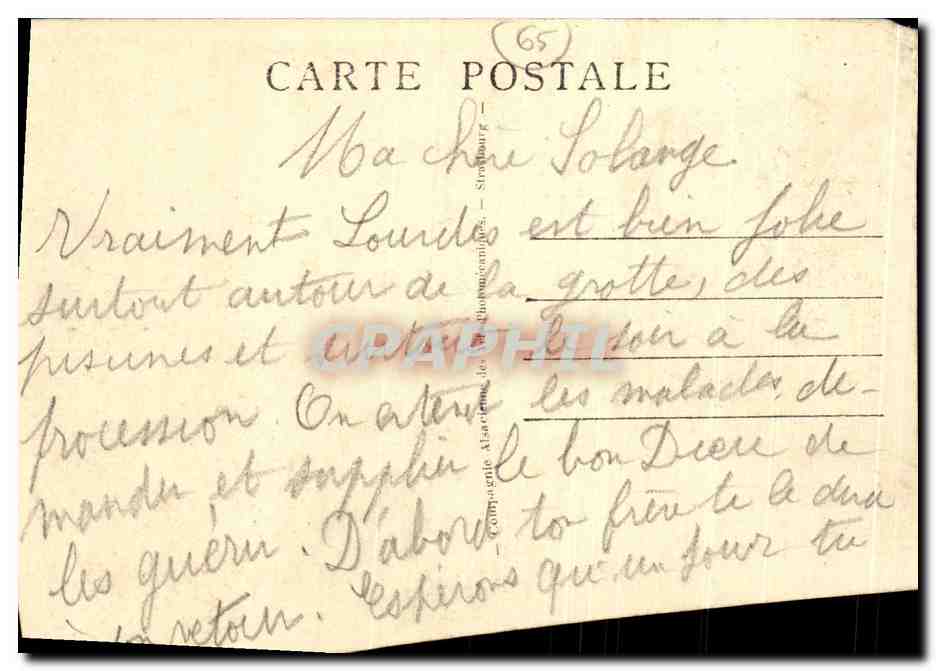 65
CARTE POSTALE
Ma chère Solange
Vraiment Lourdes est bien jolie
surtout autour de la grotte, des
piscines et surtout le soir à la
procession. On entend les malades de-
mander et supplier le bon Dieu de
les guérir. D'abord ton frère te le dira
à son retour. Espérons qu'un jour tu
- Compagnie Alsacienne des Arts Photomécaniques. - Strasbourg -
CPAPHIL